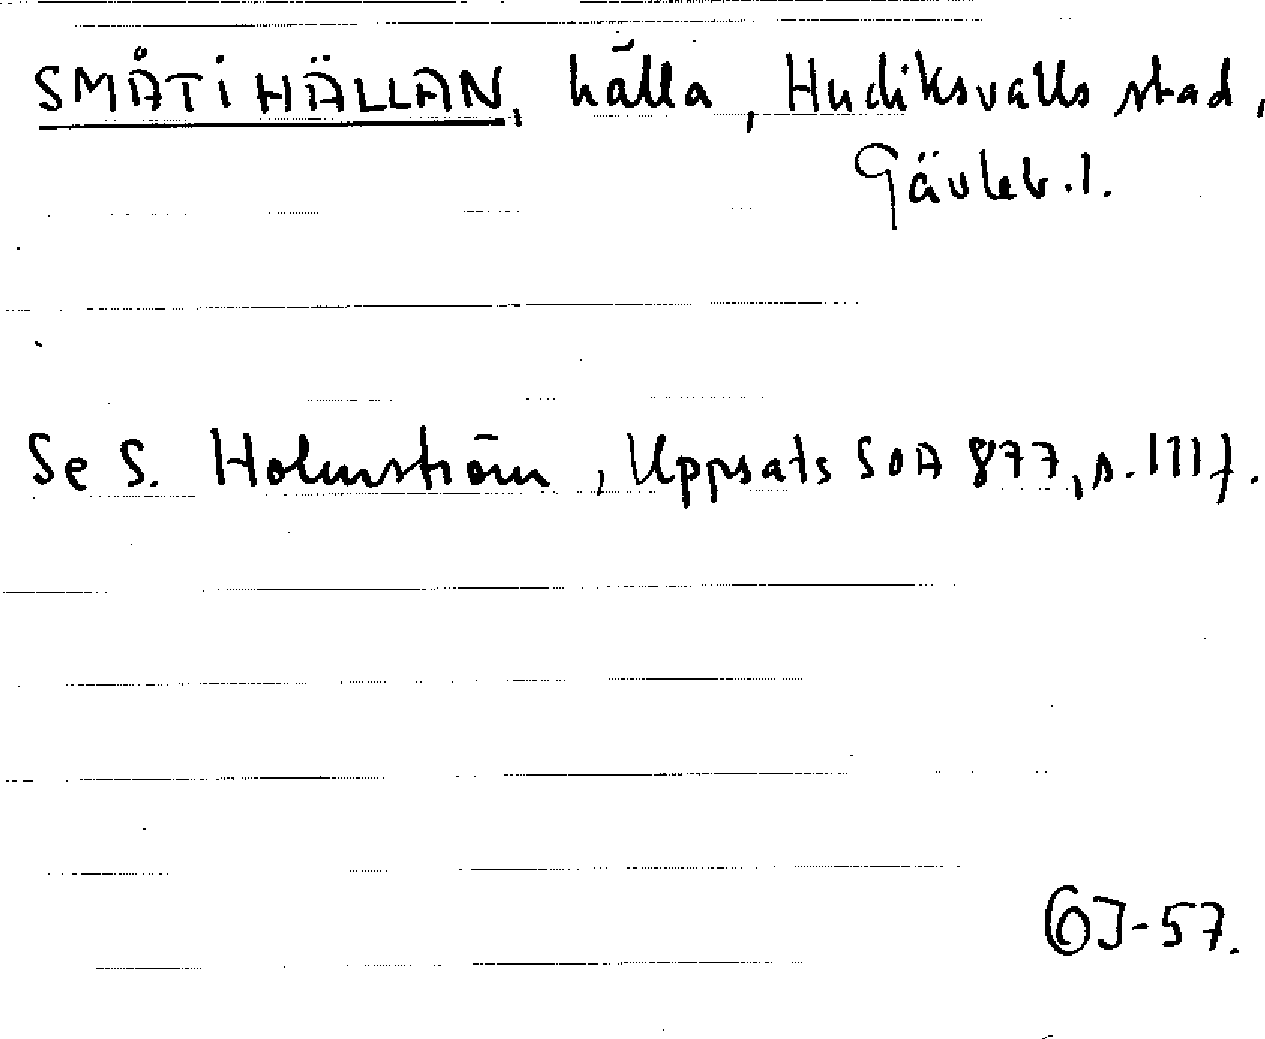 SMÅTIHÄLLAN, hälla, Hudiksvalls stad,
Gävleb.l.
Se S. Holmström, Uppsats SOA 877, s. 111f.
GJ-57.